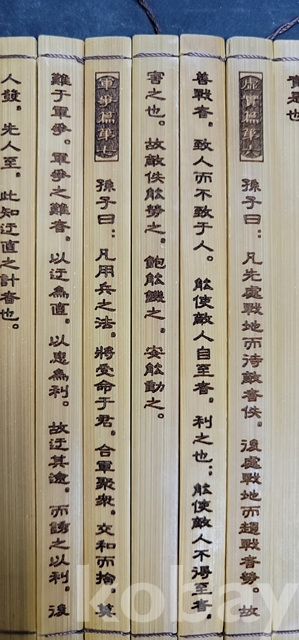 實是也
虛實篇第六 孫子曰:凡先處戰地而待敵者佚。後處戰地而趨戰者勞。故
善戰者。致人而不致于人。能使敵人自至者。利之也;能使敵人不得至者。
害之也。故敵佚能勞之。飽能饑之。安能動之。
軍爭篇第七 孫子曰:凡用兵之法。將受命于君。合軍聚衆。交和而捨。莫
難于軍爭。軍爭之難者。以迂爲直。以患爲利。故迂其途。而誘之以利。後
人發。先人至。此知迂直之計者也。
kobay